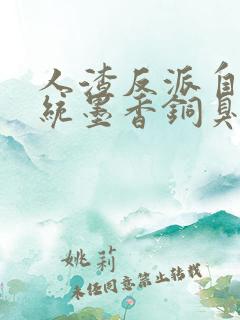 人渣反派自
統墨香銅臭
姚莉
未经同意禁止转载